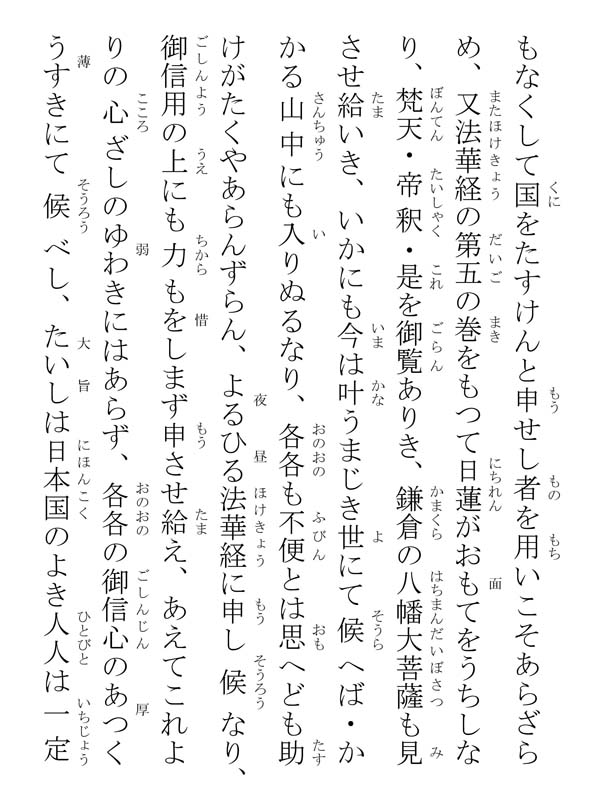 もなくして国をたすけんと申せし者を用いこそあらざら
め、又法華経の第五の巻をもつて日蓮がおもてをうちしな
り、梵天・帝釈・是を御覧ありき、鎌倉の八幡大菩薩も見
させ給いき、いかにも今は叶うまじき世にて候へば・か
かる山中にも入りぬるなり、各各も不便とは思へども助
けがたくやあらんずらん、よるひる法華経に申し候なり、
御信用の上にも力もをしまず申させ給え、あえてこれよ
りの心ざしのゆわきにはあらず、各各の御信心のあつく
うすきにて候べし、たいしは日本国のよき人人は一定